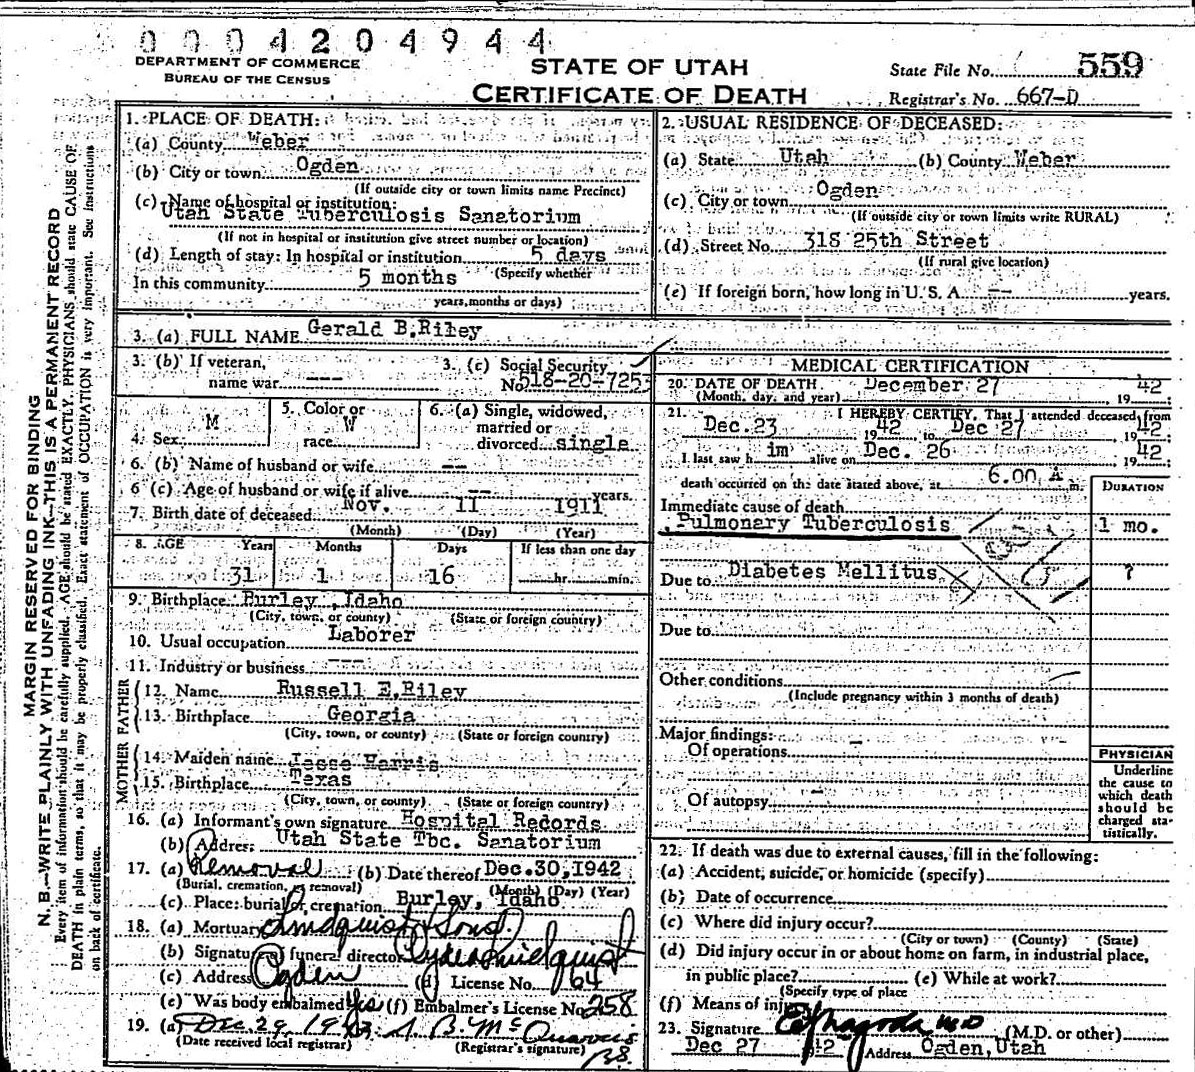 0004204944
DEPARTMENT OF COMMERCE
BUREAU OF THE CENSUS
STATE OF UTAH
CERTIFICATE OF DEATH
State File No. 559
Registrar's No. 667-D
MARGIN RESERVED FOR BINDING
N. B.—WRITE PLAINLY WITH UNFADING INK—THIS IS A PERMANENT RECORD
Every item of information should be carefully supplied. AGE should be stated EXACTLY. PHYSICIANS should state CAUSE OF
DEATH in plain terms, so that it may be properly classified. Exact statement of OCCUPATION is very important. See instructions
on back of certificate.
1. PLACE OF DEATH:
(a) County Weber
(b) City or town Ogden
(If outside city or town limits name Precinct)
(c) Name of hospital or institution:
Utah State Tuberculosis Sanatorium
(If not in hospital or institution give street number or location)
(d) Length of stay: In hospital or institution 5 days
(Specify whether
In this community 5 months
years, months or days)
2. USUAL RESIDENCE OF DECEASED:
(a) State Utah (b) County Weber
(c) City or town Ogden
(If outside city or town limits write RURAL)
(d) Street No. 318 25th Street
(If rural give location)
(e) If foreign born, how long in U. S. A. -- years.
3. (a) FULL NAME Gerald B.Riley
3. (b) If veteran,
name war ---
3. (c) Social Security
No. 518-20-725
4. Sex M
5. Color or
race W
6. (a) Single, widowed,
married or
divorced single
6. (b) Name of husband or wife --
6 (c) Age of husband or wife if alive -- years.
7. Birth date of deceased Nov. 11 1911
(Month) (Day) (Year)
8. AGE Years Months Days If less than one day
31 1 16 hr. min.
9. Birthplace Burley ,Idaho
(City, town, or county) (State or foreign country)
10. Usual occupation Laborer
11. Industry or business ---
FATHER
12. Name Russell E.Riley
13. Birthplace Georgia
(City, town, or county) (State or foreign country)
MOTHER
14. Maiden name Jesse Harris
15. Birthplace Texas
(City, town, or county) (State or foreign country)
16. (a) Informant's own signature Hospital Records
(b) Address Utah State Tbc. Sanatorium
17. (a) Removal (b) Date thereof Dec.30,1942
(Burial, cremation, or removal) (Month) (Day) (Year)
(c) Place: burial or cremation Burley, Idaho
18. (a) Mortuary Lindquist & Sons.
(b) Signature funeral director Clyde Lindquist
(c) Address Ogden (d) License No. 64
(e) Was body embalmed Yes (f) Embalmer's License No. 258
19. (a) Dec 29, 19
(Date received local registrar) (Registrar's signature)
MEDICAL CERTIFICATION
20. DATE OF DEATH December 27 1942
(Month, day, and year)
21. I HEREBY CERTIFY, That I attended deceased from
Dec.23 1942 to Dec 27 1942
I last saw him alive on Dec. 26 1942
death occurred on the date stated above, at 6.00 A m.
DURATION
Immediate cause of death
Pulmonary Tuberculosis 1 mo.
Due to Diabetes Mellitus ?
Due to
Other conditions
(Include pregnancy within 3 months of death)
Major findings:
Of operations
Of autopsy
PHYSICIAN
Underline
the cause to
which death
should be
charged sta-
tistically.
22. If death was due to external causes, fill in the following:
(a) Accident, suicide, or homicide (specify)
(b) Date of occurrence
(c) Where did injury occur?
(City or town) (County) (State)
(d) Did injury occur in or about home on farm, in industrial place,
in public place? (e) While at work?
(Specify type of place
(f) Means of injury
23. Signature M D (M.D. or other)
Dec 27 Address Ogden,Utah